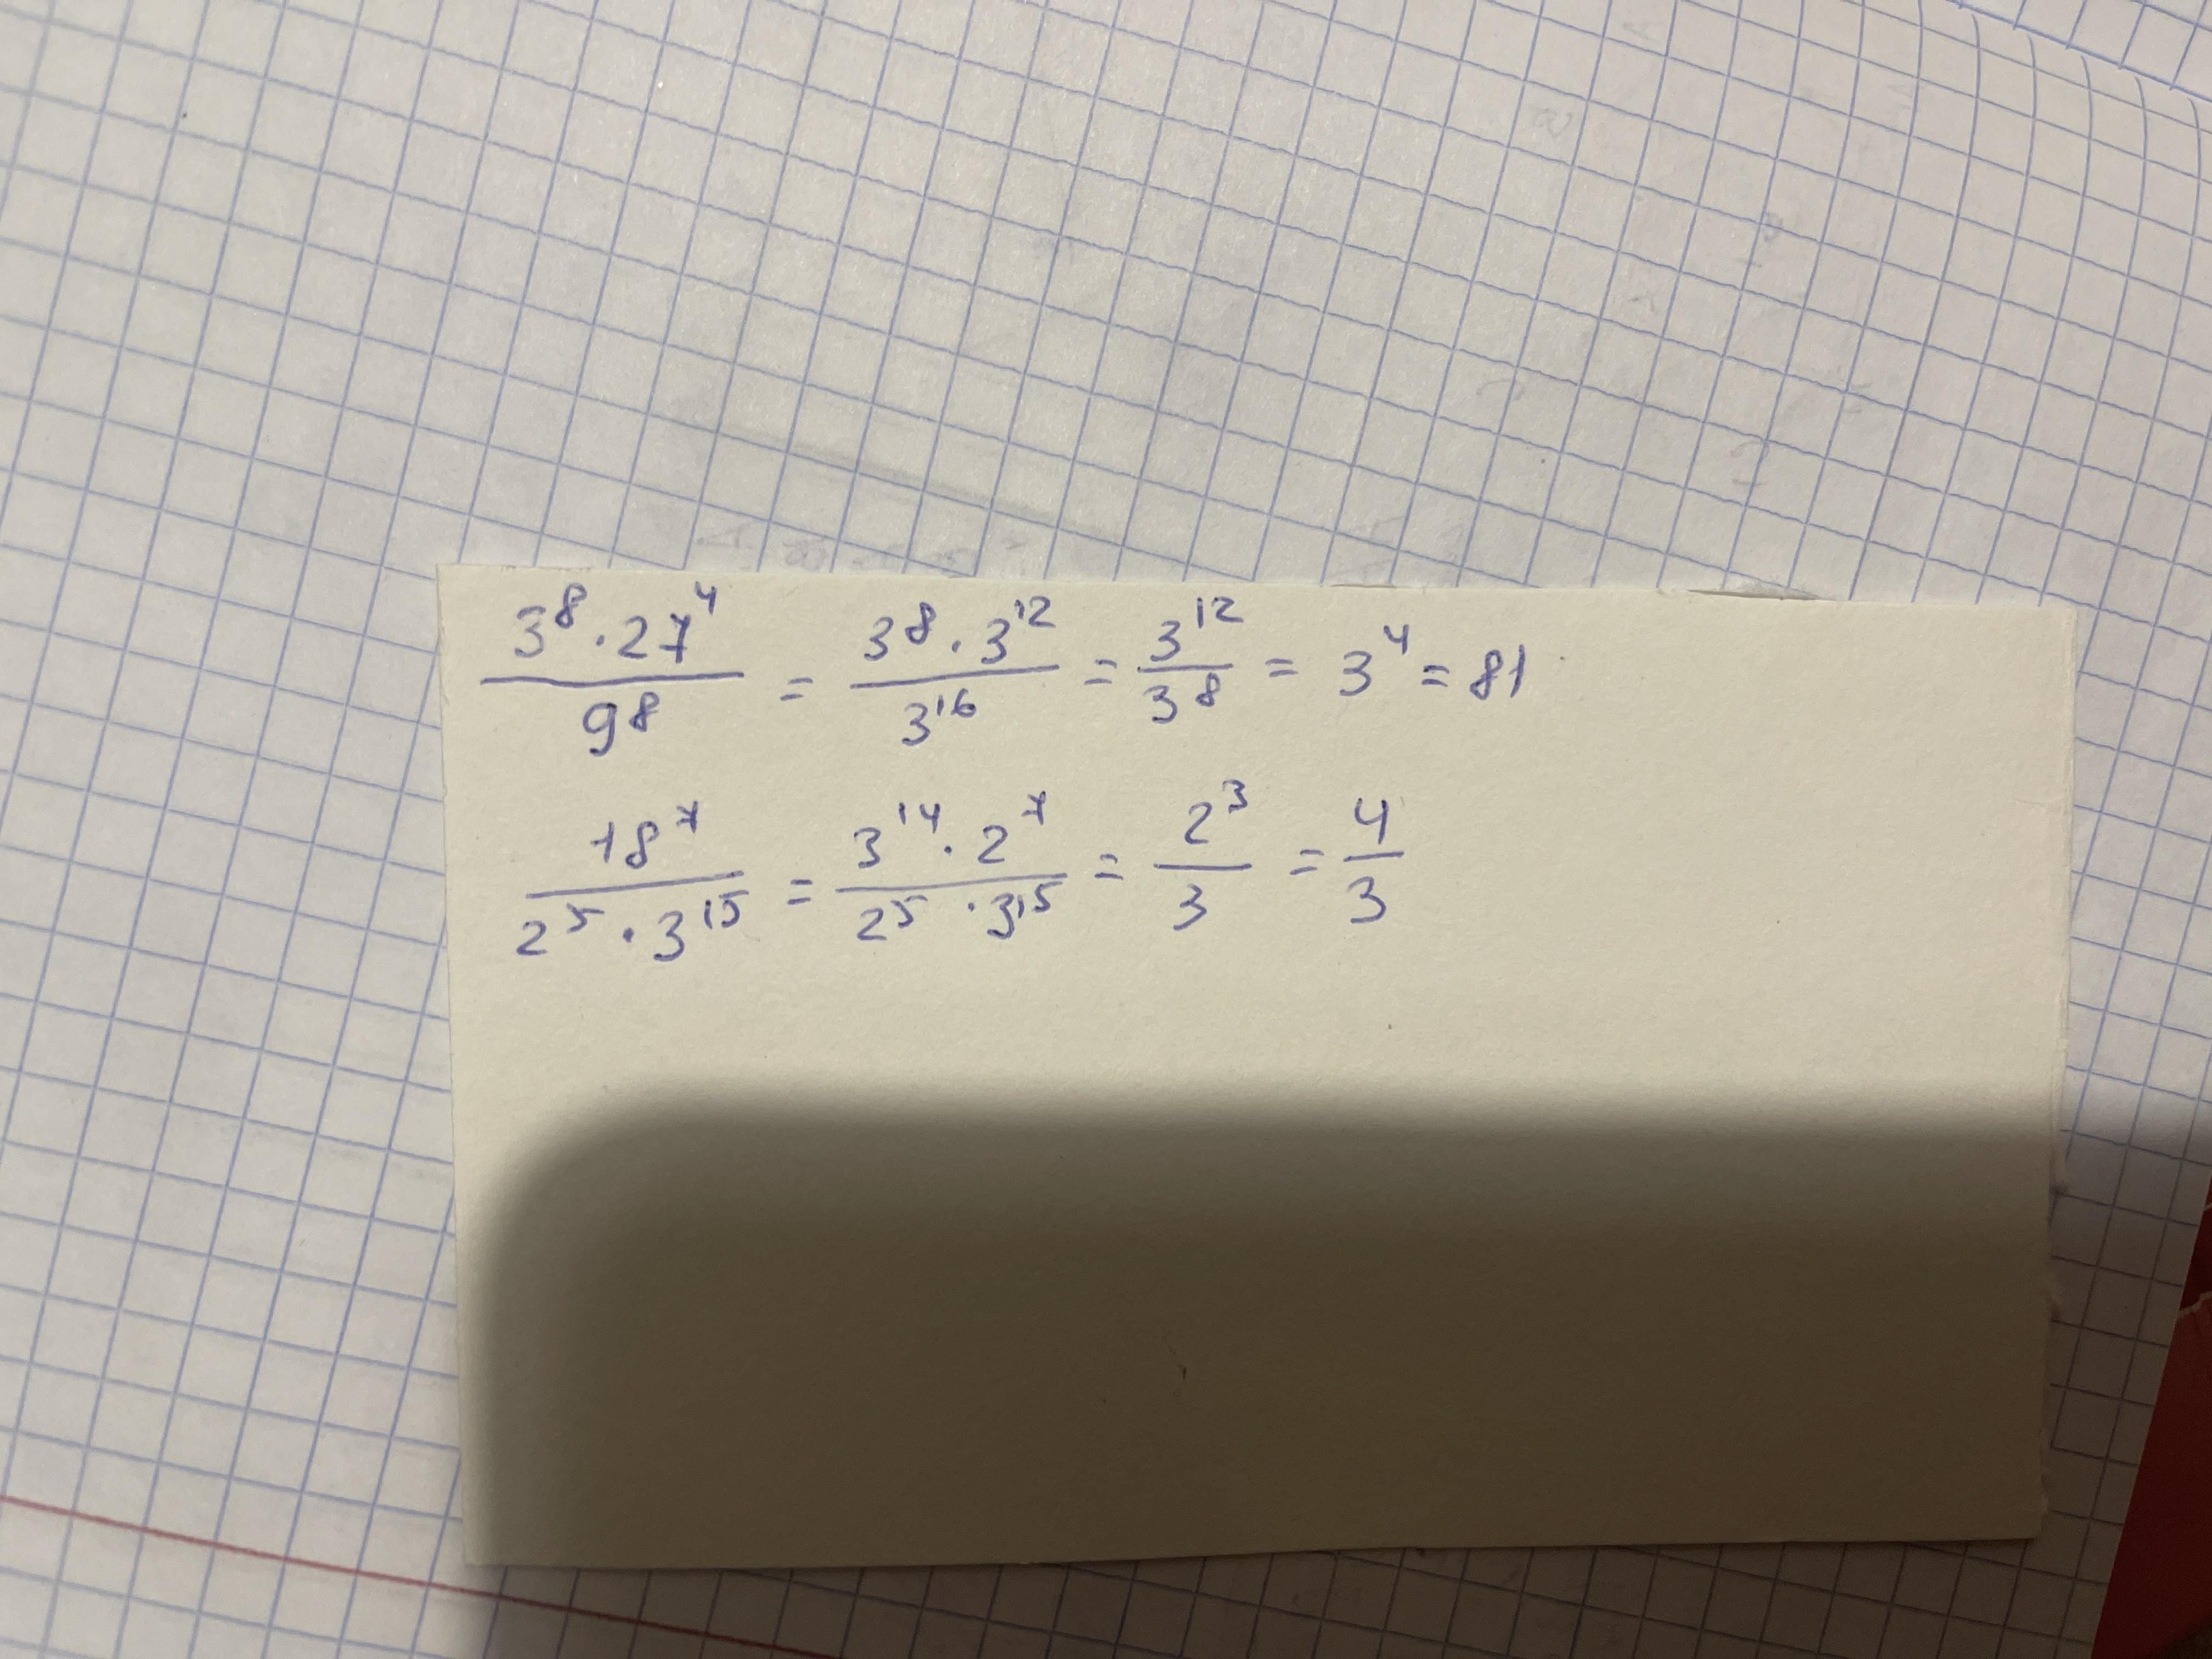 3⁸ · 27⁴ / 9⁸ = 3⁸ · 3¹² / 3¹⁶ = 3¹² / 3⁸ = 3⁴ = 81
18⁷ / 2⁵ · 3¹⁵ = 3¹⁴ · 2⁷ / 2⁵ · 3¹⁵ = 2³ / 3 = 4 / 3